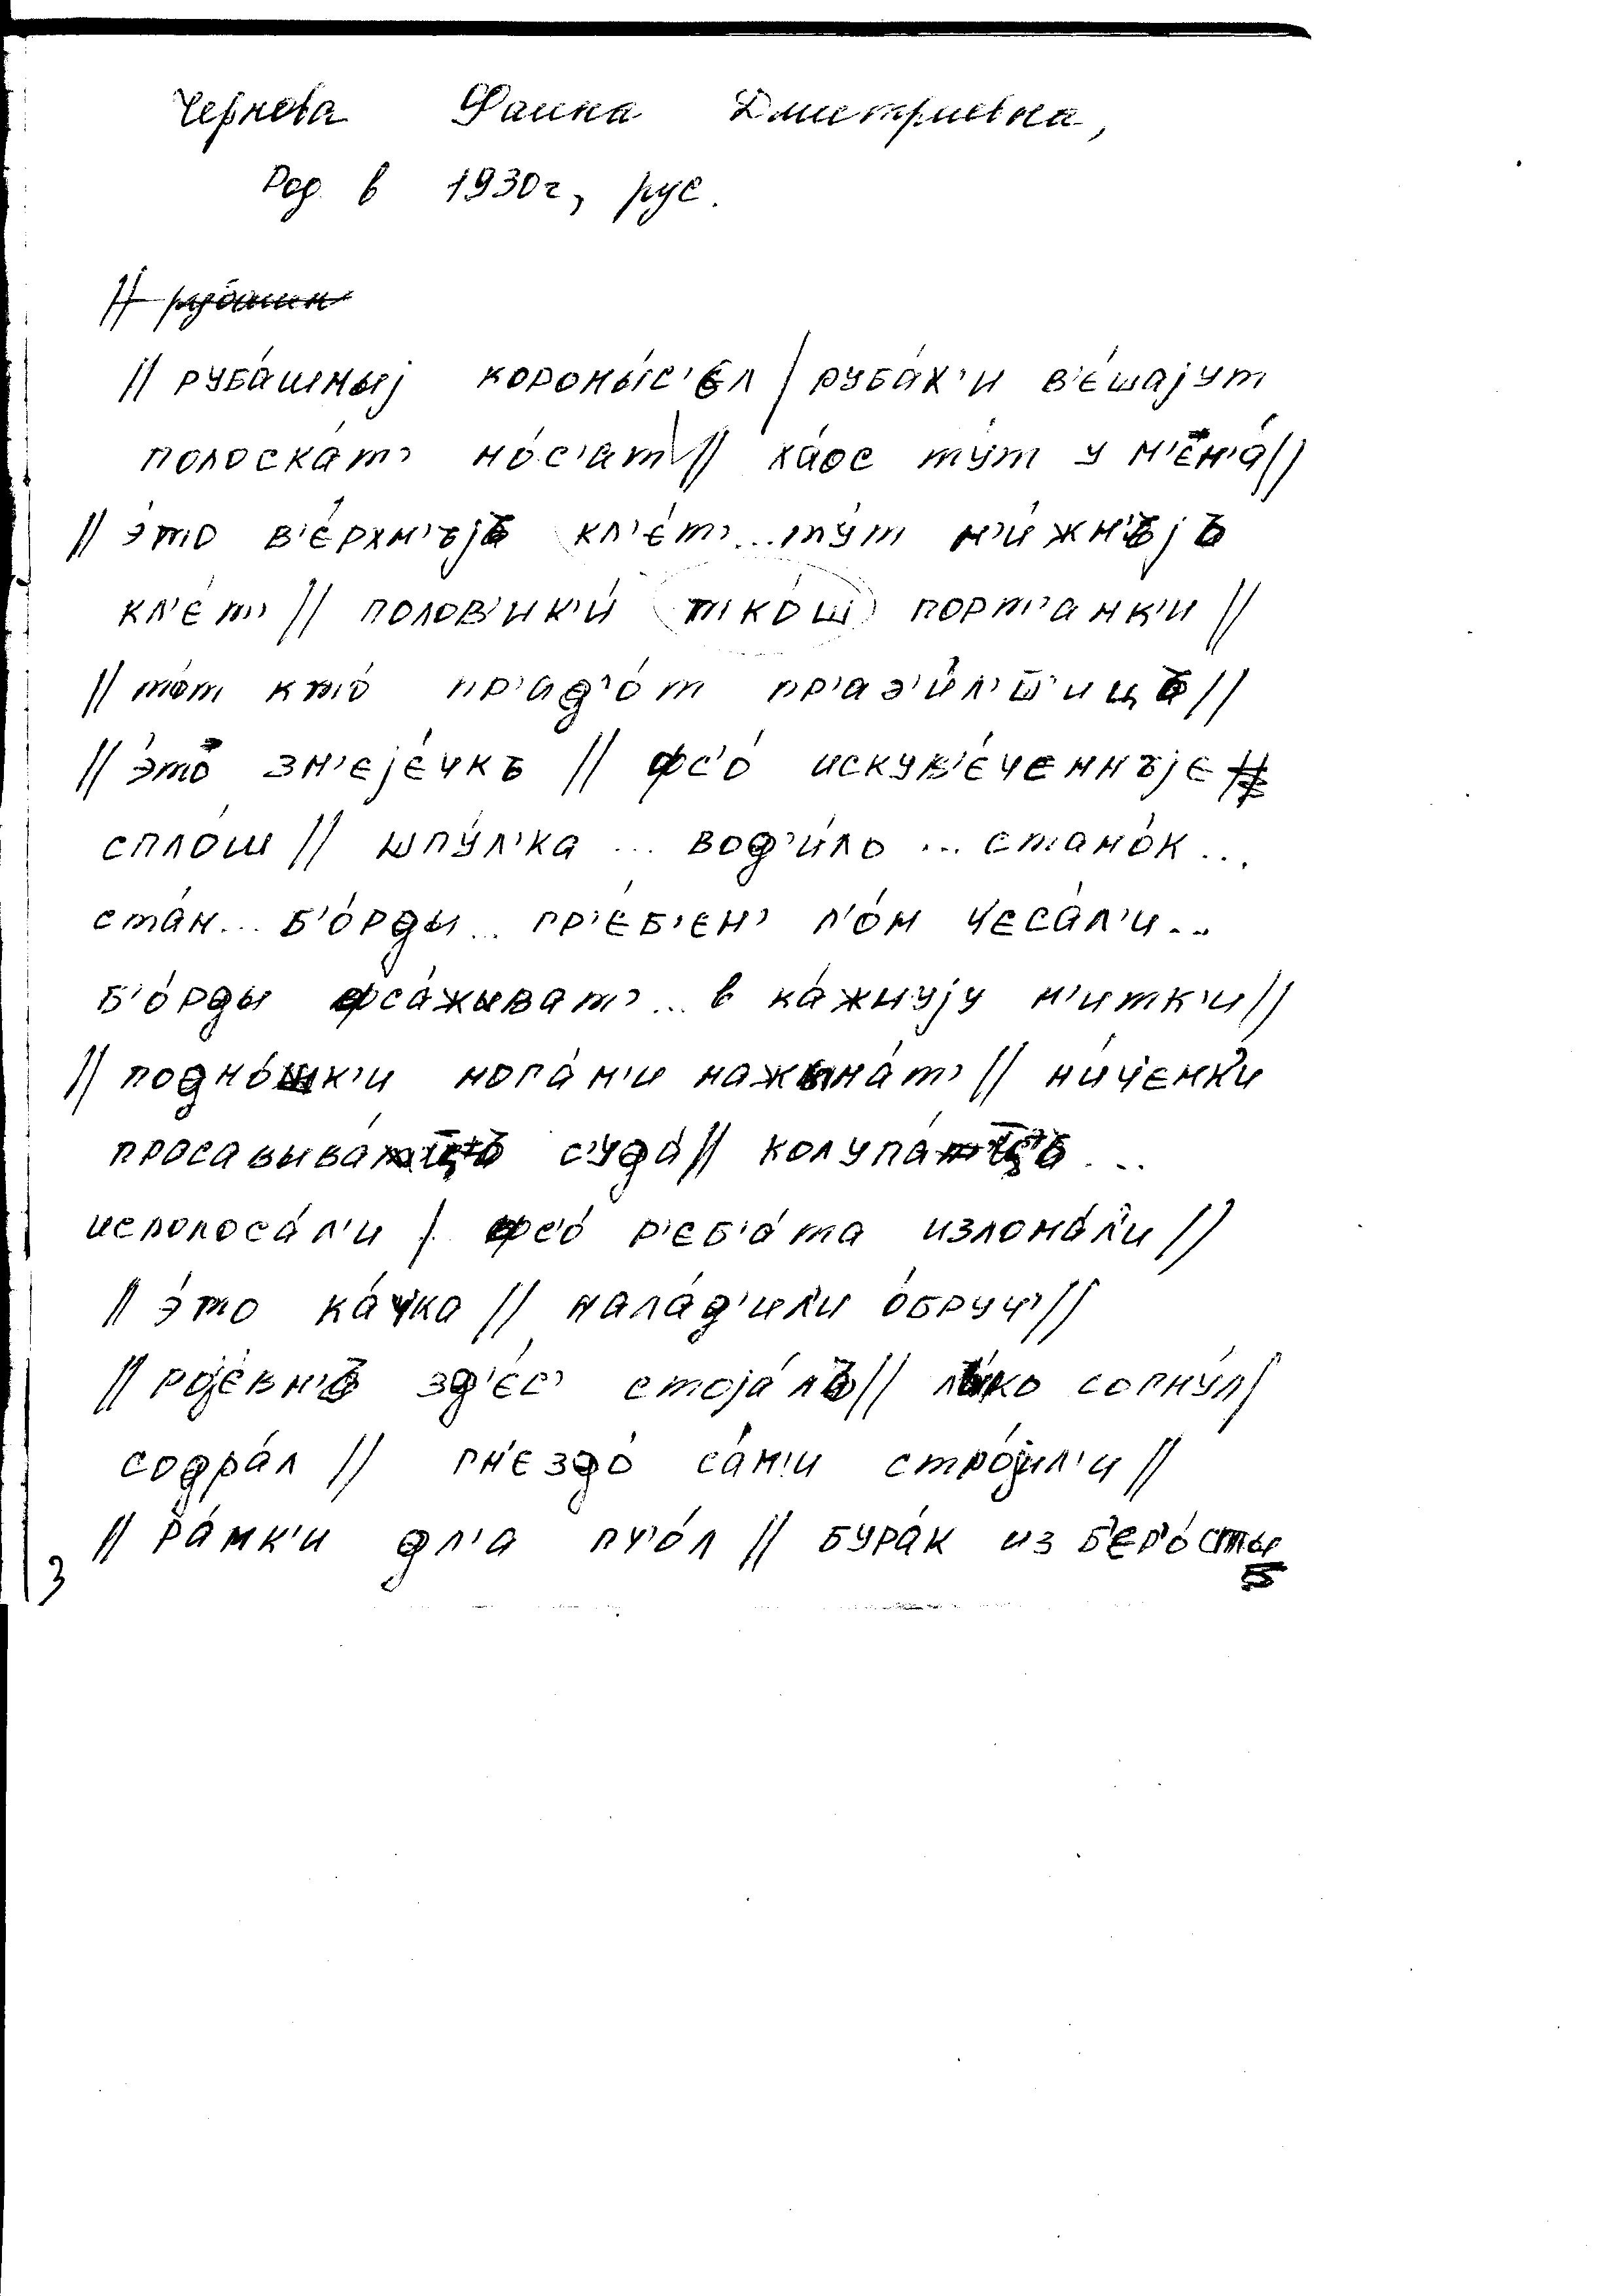 Чернова Фаина Дмитриевна,
Род. в 1930г, рус.
// рубашн
// руба́шныј коромы́с'єл / руба́х'и в'е́шајут
полоска́т' но́с'ат // ха́ос ту́т у м'єн'а́ //
// э́то в'е́рхн'ъјъ кл'е́т'... ту́т н'и́жн'ъјъ
кл'е́т' // полов'ик'и́ тко́ш порт'анк'и //
// то́т кто́ пр'ад'о́т пр'аз'и́л'ш̅'ицъ //
// э́то зм'єје́чкъ // фс'о́ искув'е́ченнъјє //
спло́ш // шпу́л'ка ... вод'и́ло ... стано́к ...
ста́н... б'о́рды... гр'е́б'єн' л'о́н ч'єса́л'и...
б'о́рды фса́жыват'... в ка́жнују н'итк'и //
// подно́шк'и нога́м'и нажына́т' // ни́ч'єнк'и
просавыва́ с'уда́ // колупа́ ...
исполоса́л'и / фс'о́ р'єб'а́та излома́л'и //
// э́то ка́ч'ка // нала́д'ил'и о́бруч' //
// роје́вн'ъ зд'е́с' стоја́лъ // лы́ко согну́л /
содра́л // гн'єздо́ са́м'и стро́јил'и //
// ра́мк'и дл'а пч'о́л // бура́к из б'єр'о́сты
3